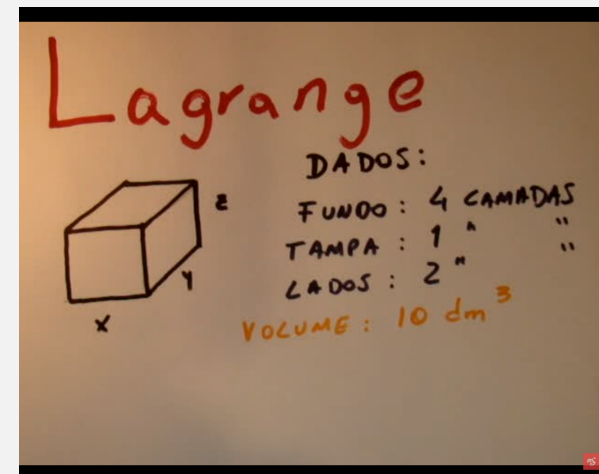 Lagrange
DADOS:
FUNDO : 4 CAMADAS
TAMPA : 1 " "
LADOS : 2 " "
VOLUME : 10 dm³
z
y
x